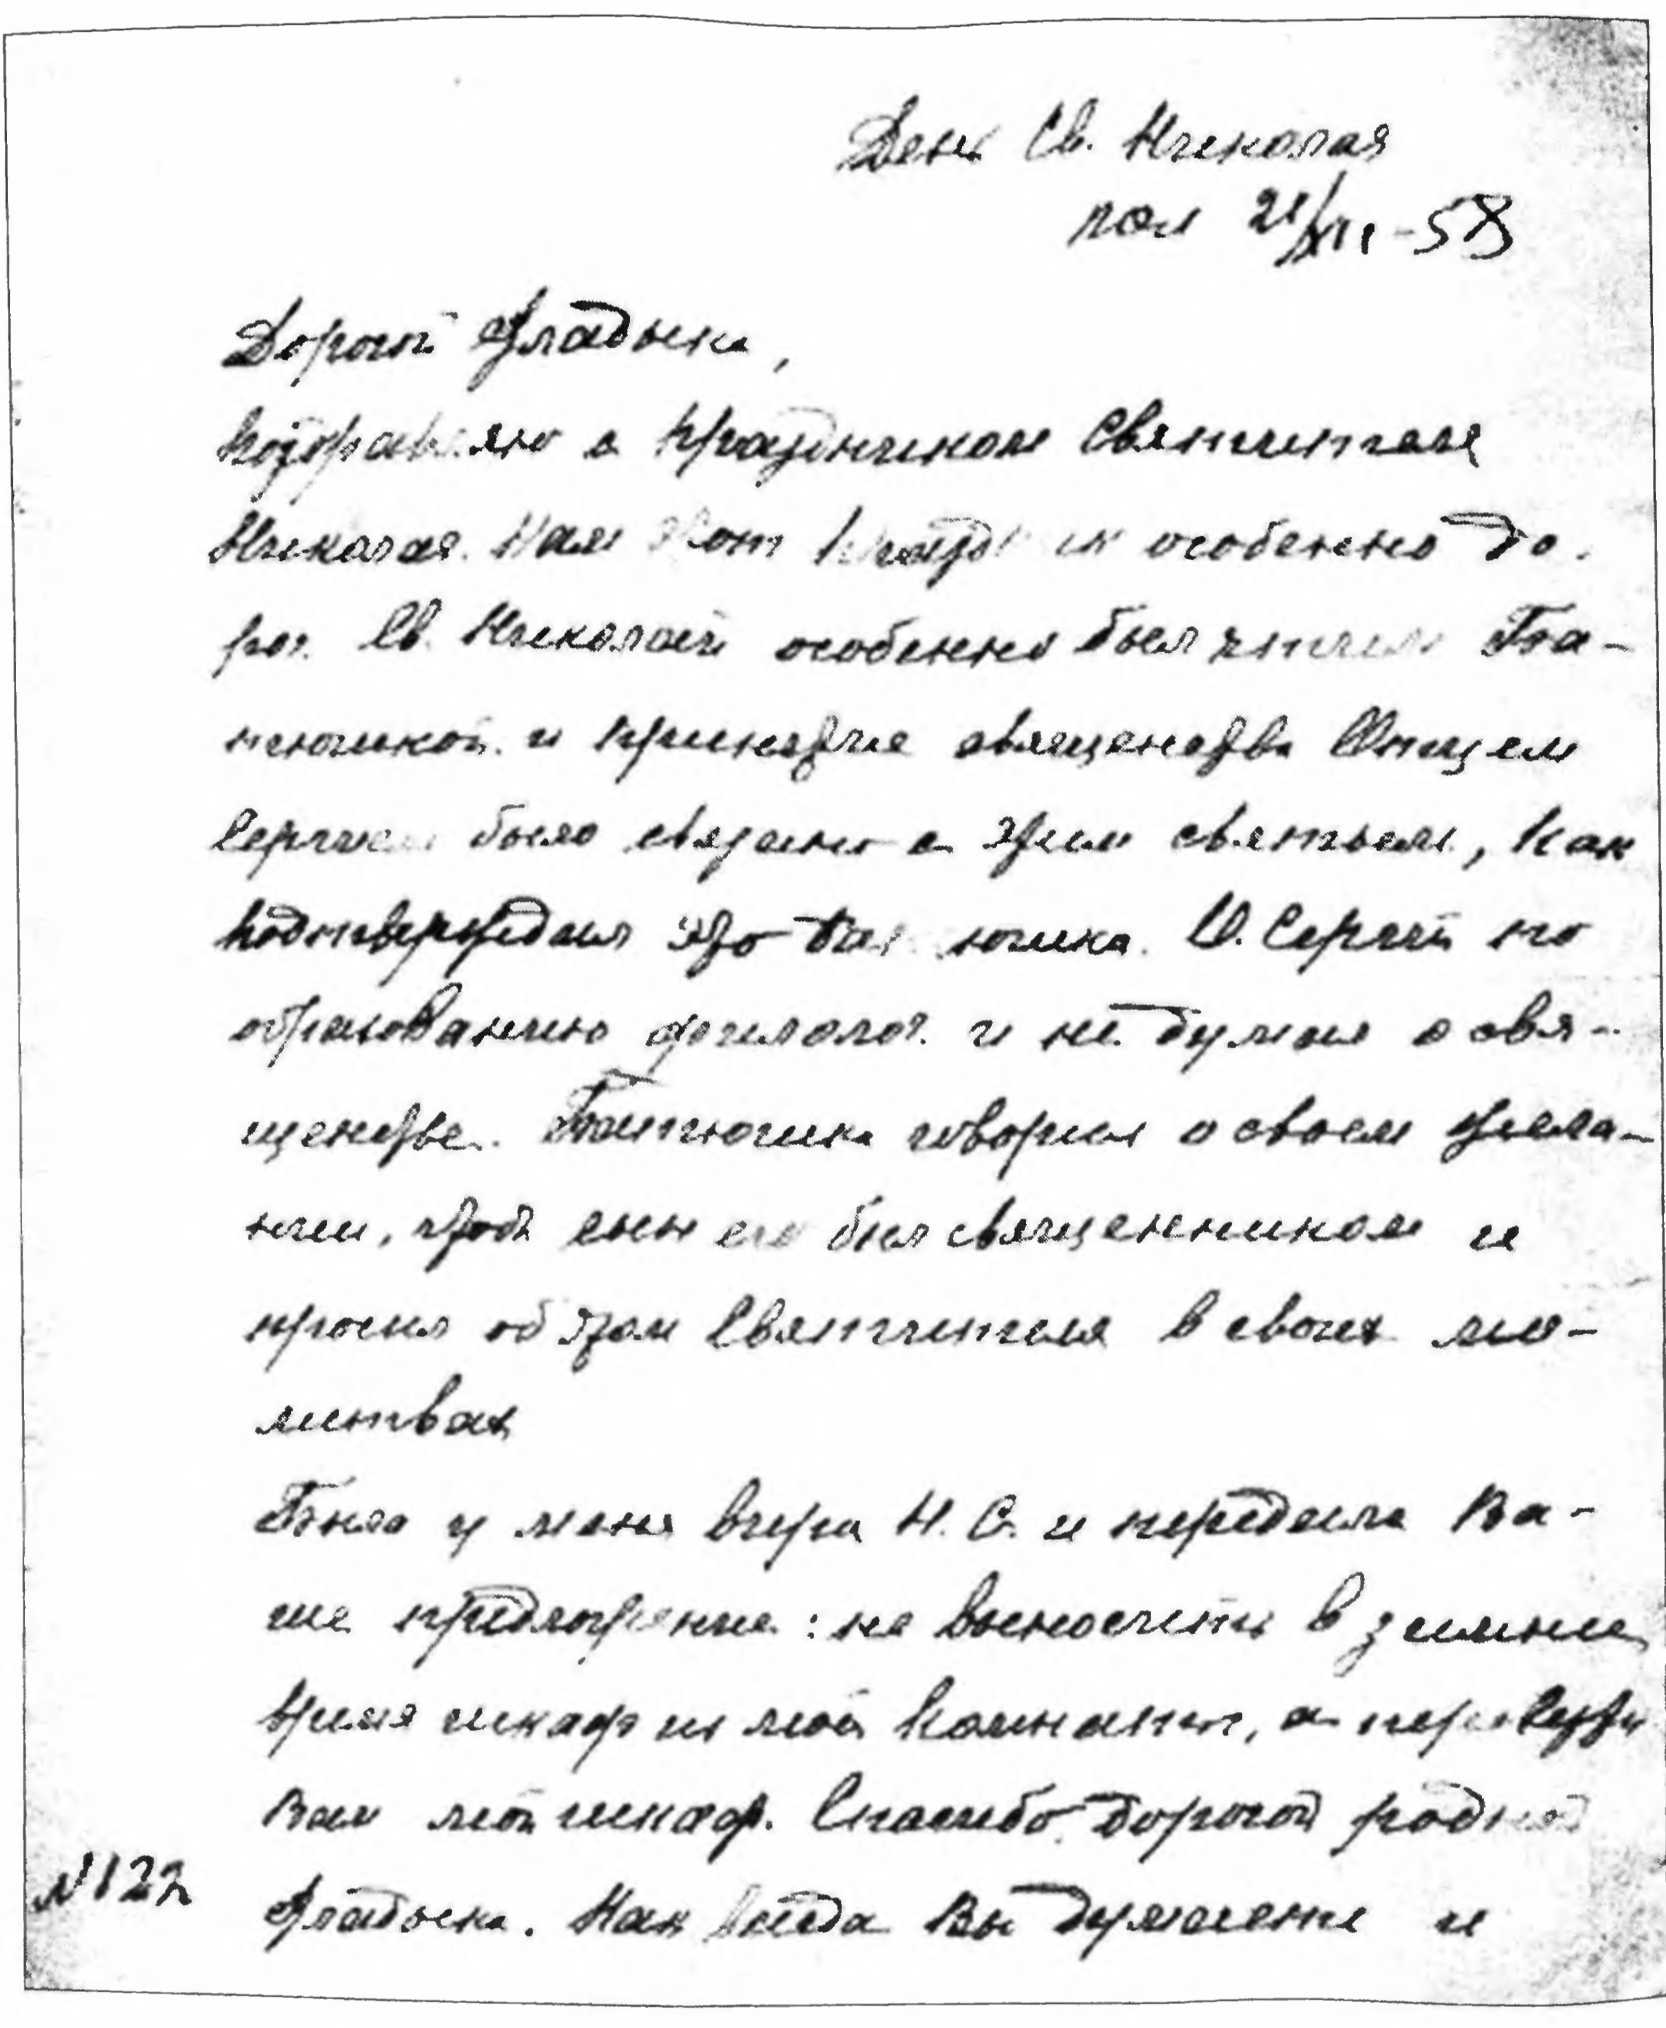 День Св. Николая
21/XII-58
Дорогой Владыка,
поздравляю с праздником Святителя
Николая. Нам этот праздник особенно до-
рог. Св. Николай особенно был чтим Ба-
тюшкой и принятие священства Отцем
Сергием было связано с этим святым, как
подтверждал это Батюшка. О. Сергий по
образованию филолог и не думал о свя-
щенстве. Батюшка говорил о своем жела-
нии, чтоб сын его был священником и
просил об этом Святителя в своих мо-
литвах
Была у меня вчера Н. С. и передала Ва-
ше предложение: не выносить в зимнее
время шкаф из моей комнаты, а перевезти
Вам мой шкаф. Спасибо дорогой родной
Владыка. Как всегда Вы думаете и
№122